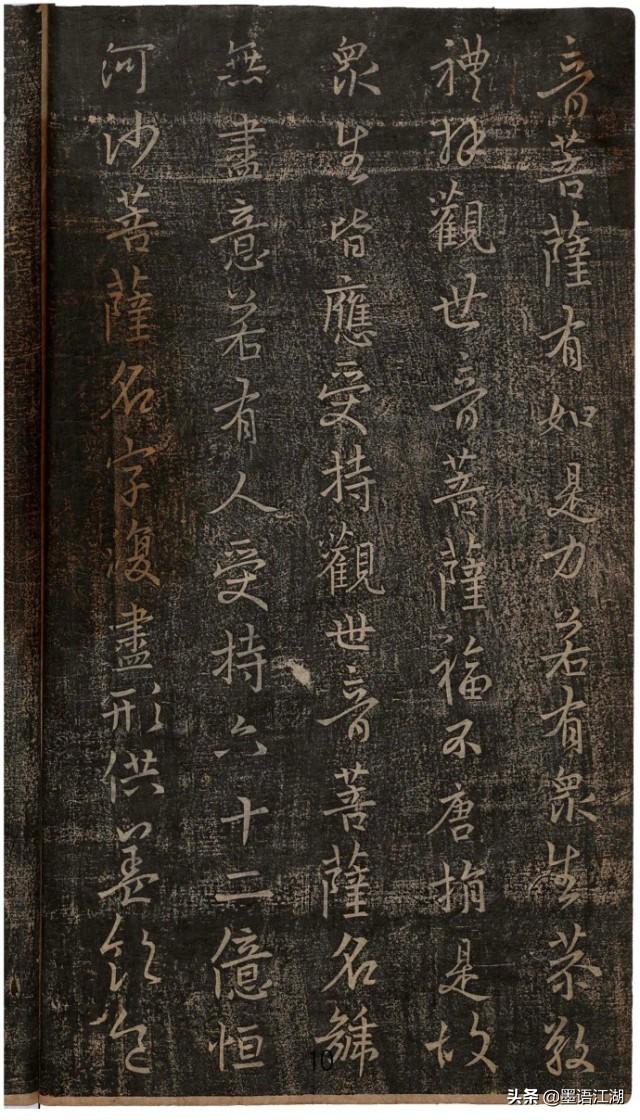 音菩薩有如是力若有眾生恭敬
禮拜觀世音菩薩福不唐捐是故
眾生皆應受持觀世音菩薩名號
無盡意若有人受持六十二億恒
河沙菩薩名字復盡形供養飲食
10
头条 @墨语江湖